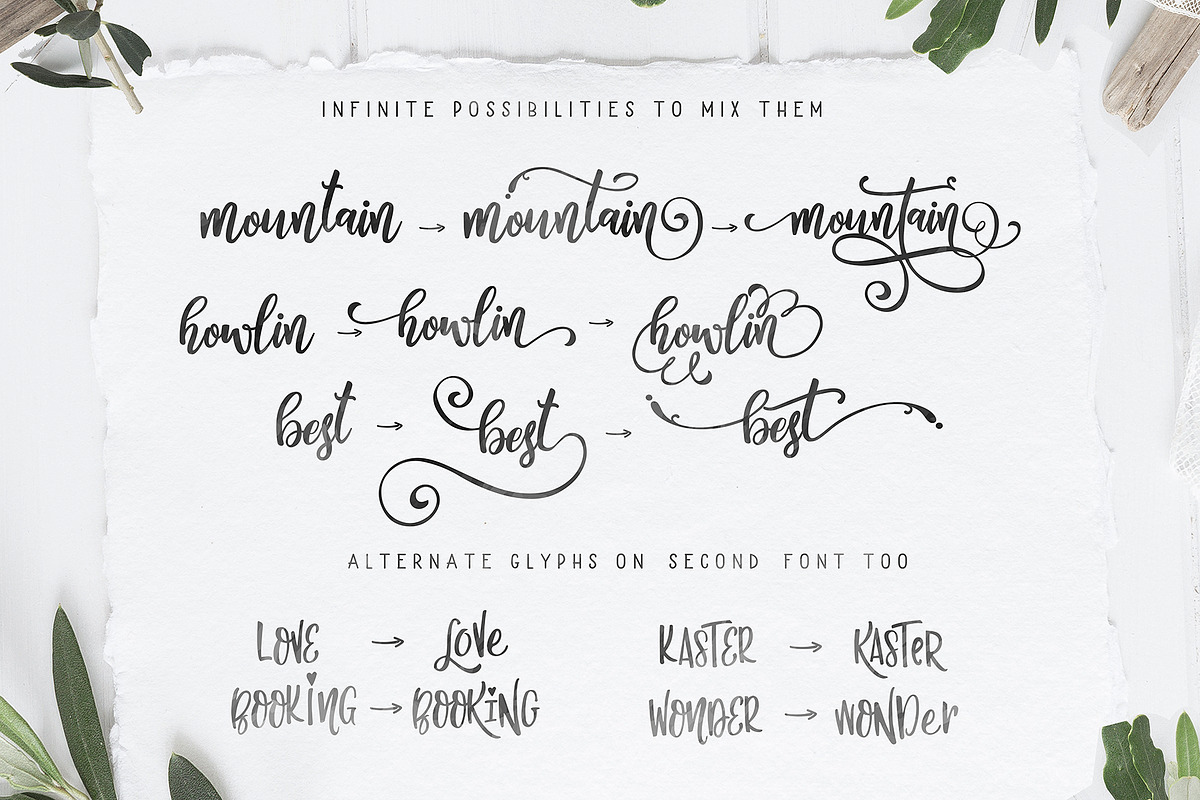 INFINITE POSSIBILITIES TO MIX THEM
mountain → mountain → mountain
howlin → howlin → howlin
best → best → best
ALTERNATE GLYPHS ON SECOND FONT TOO
LOVE → Love KASTER → KASTeR
BOOKING → BOOKING WONDER → WONDer